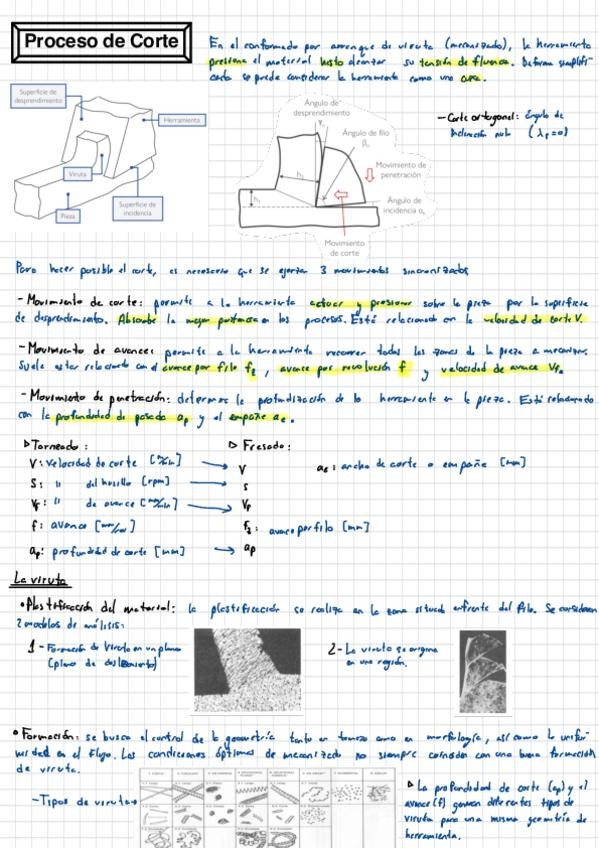 Proceso de Corte
En el conformado por arranque de viruta (mecanizado), la herramienta
presiona el material hasta alcanzar su tensión de fluencia. De forma simplifi-
cada se puede considerar la herramienta como una cuña.
Superficie de
desprendimiento
Herramienta
Viruta
Superficie de
incidencia
Pieza
Ángulo de
desprendimiento
Ángulo de filo
Movimiento de
penetración
h₂
h₁
Ángulo de
incidencia
Movimiento
de corte
- Corte ortogonal: ángulo de
inclinación nulo
Para hacer posible el corte, es necesario que se ejerzan 3 movimientos sincronizados
- Movimiento de corte: permite a la herramienta actuar y presionar sobre la pieza por la superficie
de desprendimiento. Absorbe la mayor potencia en los procesos. Está relacionado con la velocidad de corte V.
- Movimiento de avance: permite a la herramienta recorrer todas las zonas de la pieza a mecanizar.
Suele estar relacionado con el avance por filo fz, avance por revolución f y velocidad de avance
- Movimiento de penetración: determina la profundización de la herramienta en la pieza. Está relacionado
con la profundidad de pasada ap y el empañe ae.
▷ Torneado:
V: velocidad de corte [m/min]
S: " del husillo [rpm]
Vf: " de avance [mm/min]
f: avance [mm/rev]
ap: profundidad de corte [mm]
▷ Fresado:
V
S
Vf
fz: avance por filo [mm]
ap
ae: ancho de corte o empañe [mm]
La viruta
• Plastificación del material: la plastificación se realiza en la zona situada enfrente del filo. Se consideran
2 modelos de análisis:
1 - Formación de viruta en un plano
(plano de deslizamiento)
2 - La viruta se origina
en una región.
• Formación: se busca el control de la geometría tanto en tamaño como en morfología, así como la unifor-
midad en el flujo. Las condiciones óptimas de mecanizado no siempre coinciden con una buena formación
de viruta.
- Tipos de viruta
▷ La profundidad de corte (ap) y el
avance (f) generan diferentes tipos de
viruta para una misma geometría de
herramienta.